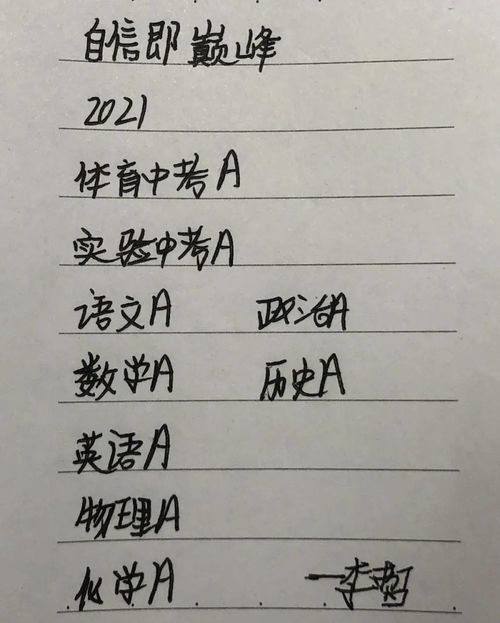 自信即巅峰
2021
体育中考A
实验中考A
语文A 政治A
数学A 历史A
英语A
物理A
化学A 一李